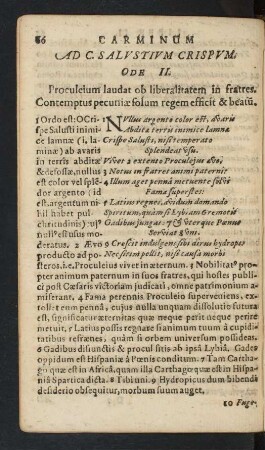 86 CARMINUM
AD C. SALVSTIVM CRISPVM.
ODE II.
Proculeium laudat ob liberalitatem in fratres.
Contemptus pecuniæ solum regem efficit & beatū.
1 Ordo est: O Cri-
spe Salusti inimi-
ce lamnæ (i, la-
mina) ab avaris
in terris abditæ
& defossæ, nullus
est color vel splē-
dor argento (id
est argentum ni-
hil habet pul-
chritudinis)
nisi est usu mo-
deratus. 2 Ævo
producto ad po-
NVllus argento color est, avaris
Abditæ terris inimice lamnæ
Crispe Salusti, nisi temperato
Splendeat usu.
Vivet 2 extento Proculejus ævo,
3 Notus in fratres animi paterni:
4 Illum aget pennâ metuente solvi
Fama superstes:
5 Latius regnes, avidum domando
Spiritum, quàm si Lybiam
6 Gadibus jungas, 7 & uterque Pœnus
Serviat 8 uni.
9 Crescit indulgens sibi dirus hydrops
Nec sitim pellit, nisi causa morbi
steros. i.e. Proculeius vivet in æternum. 3 Nobilitat9 pro-
pter animum paternum in suos fratres, qui hostes publi-
ci post Cæsaris victoriam judicati, omne patrimonium a-
miserant. 4 Fama perennis Proculeio superveniens, ex-
tollet eum pennâ, cujus nulla unquam dissolutio futura
est, significatur æternitas quæ neque perit neque perire
metuit, 5 Latius possis regnare si animum tuum à cupidi-
tatibus refrænes, quàm si orbem universum possideas.
6 Gadibus disjunctis & procul sitis ab ipsâ Lybiâ. Gades
oppidum est Hispaniæ à Pœnis conditum. 7 Tam Cartha-
go quæ est in Africâ, quam illa Carthago quæ est in Hispa-
niâ Spartica dicta. 8 Tibi uni. 9 Hydropicus dum bibendi
desiderio obsequitur, morbum suum auget,
10 Fuge-